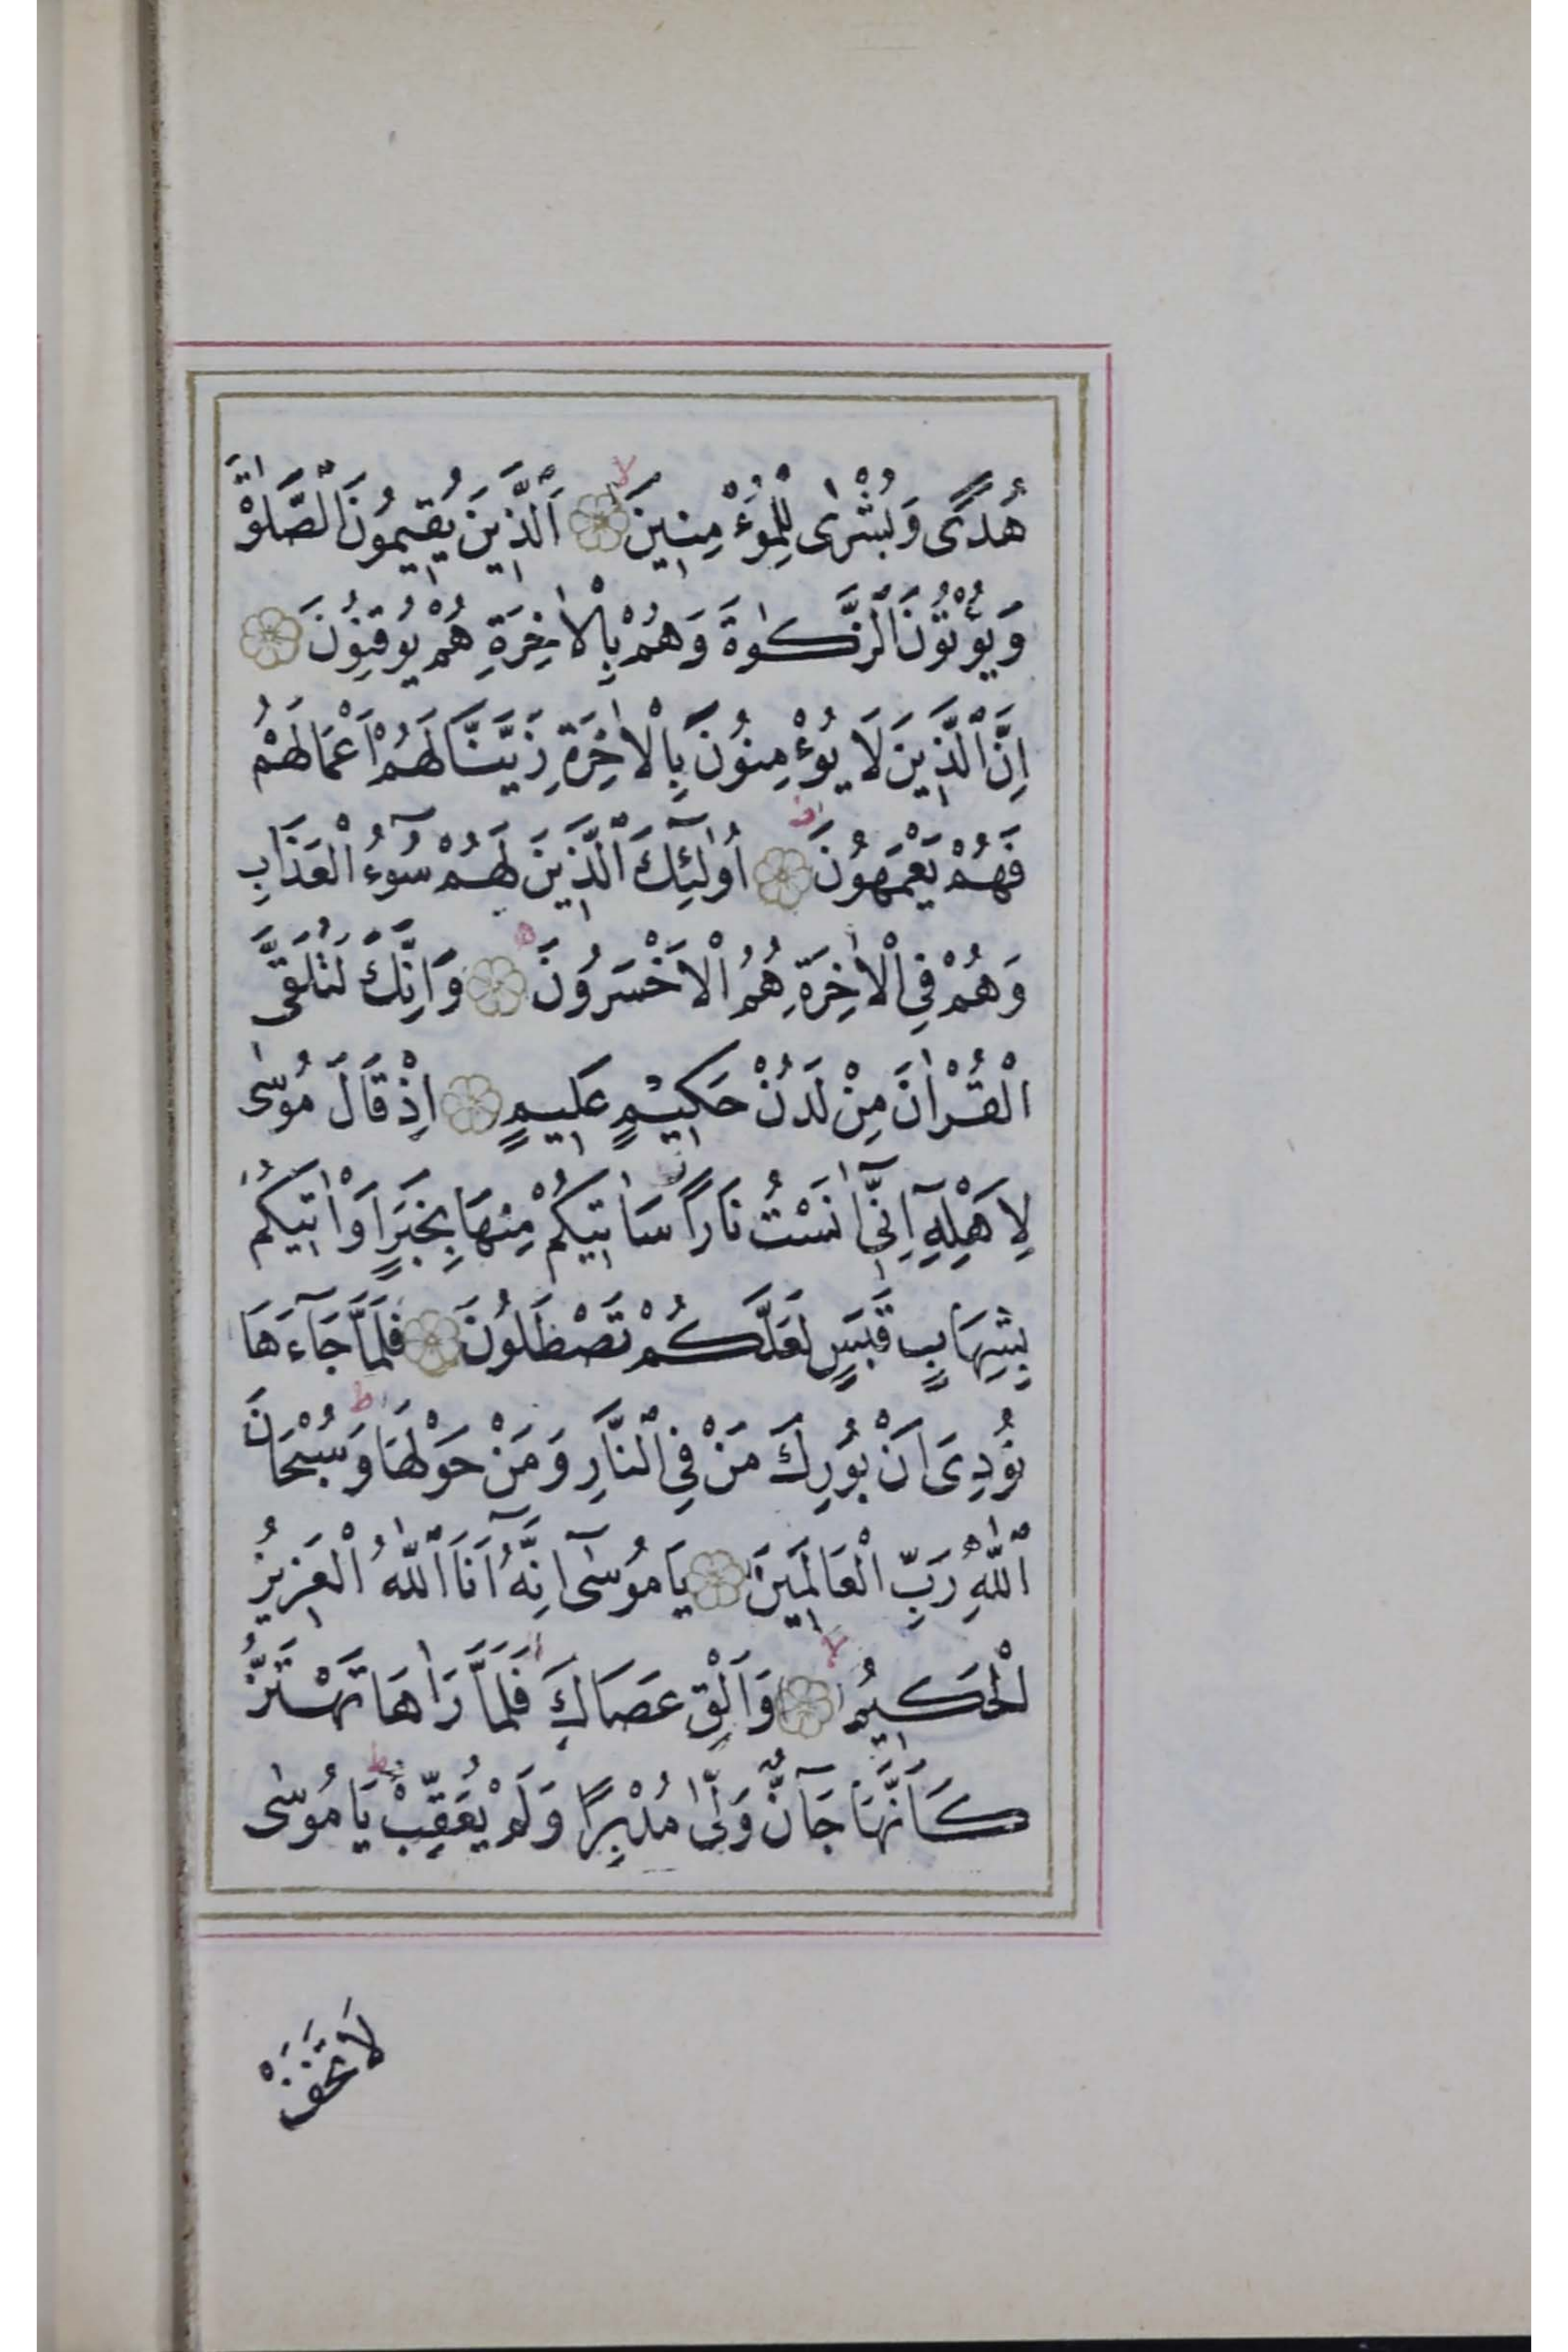 هُدًى وَبُشْرٰى لِلْمُؤْمِنٖينَ لا اَلَّذٖينَ يُقٖيمُونَ الصَّلٰوةَ
وَيُؤْتُونَ الزَّكٰوةَ وَهُمْ بِالْاٰخِرَةِ هُمْ يُوقِنُونَ
اِنَّ الَّذٖينَ لَا يُؤْمِنُونَ بِالْاٰخِرَةِ زَيَّنَّا لَهُمْ اَعْمَالَهُمْ
فَهُمْ يَعْمَهُونَ ط اُولٰٓئِكَ الَّذٖينَ لَهُمْ سُوٓءُ الْعَذَابِ
وَهُمْ فِى الْاٰخِرَةِ هُمُ الْاَخْسَرُونَ ه وَاِنَّكَ لَتُلَقَّى
الْقُرْاٰنَ مِنْ لَدُنْ حَكٖيمٍ عَلٖيمٍ اِذْ قَالَ مُوسٰى
لِاَهْلِهٖٓ اِنّٖٓى اٰنَسْتُ نَارًا سَاٰتٖيكُمْ مِنْهَا بِخَبَرٍ اَوْ اٰتٖيكُمْ
بِشِهَابٍ قَبَسٍ لَعَلَّكُمْ تَصْطَلُونَ فَلَمَّا جَٓاءَهَا
نُودِىَ اَنْ بُورِكَ مَنْ فِى النَّارِ وَمَنْ حَوْلَهَا ط وَسُبْحَانَ
اللّٰهِ رَبِّ الْعَالَمٖينَ يَا مُوسٰٓى اِنَّهُٓ اَنَا اللّٰهُ الْعَزٖيزُ
الْحَكٖيمُ لا وَاَلْقِ عَصَاكَ فَلَمَّا رَاٰهَا تَهْتَزُّ
كَاَنَّهَا جَٓانٌّ وَلّٰى مُدْبِرًا وَلَمْ يُعَقِّبْ ط يَا مُوسٰى
لَا تَخَفْ